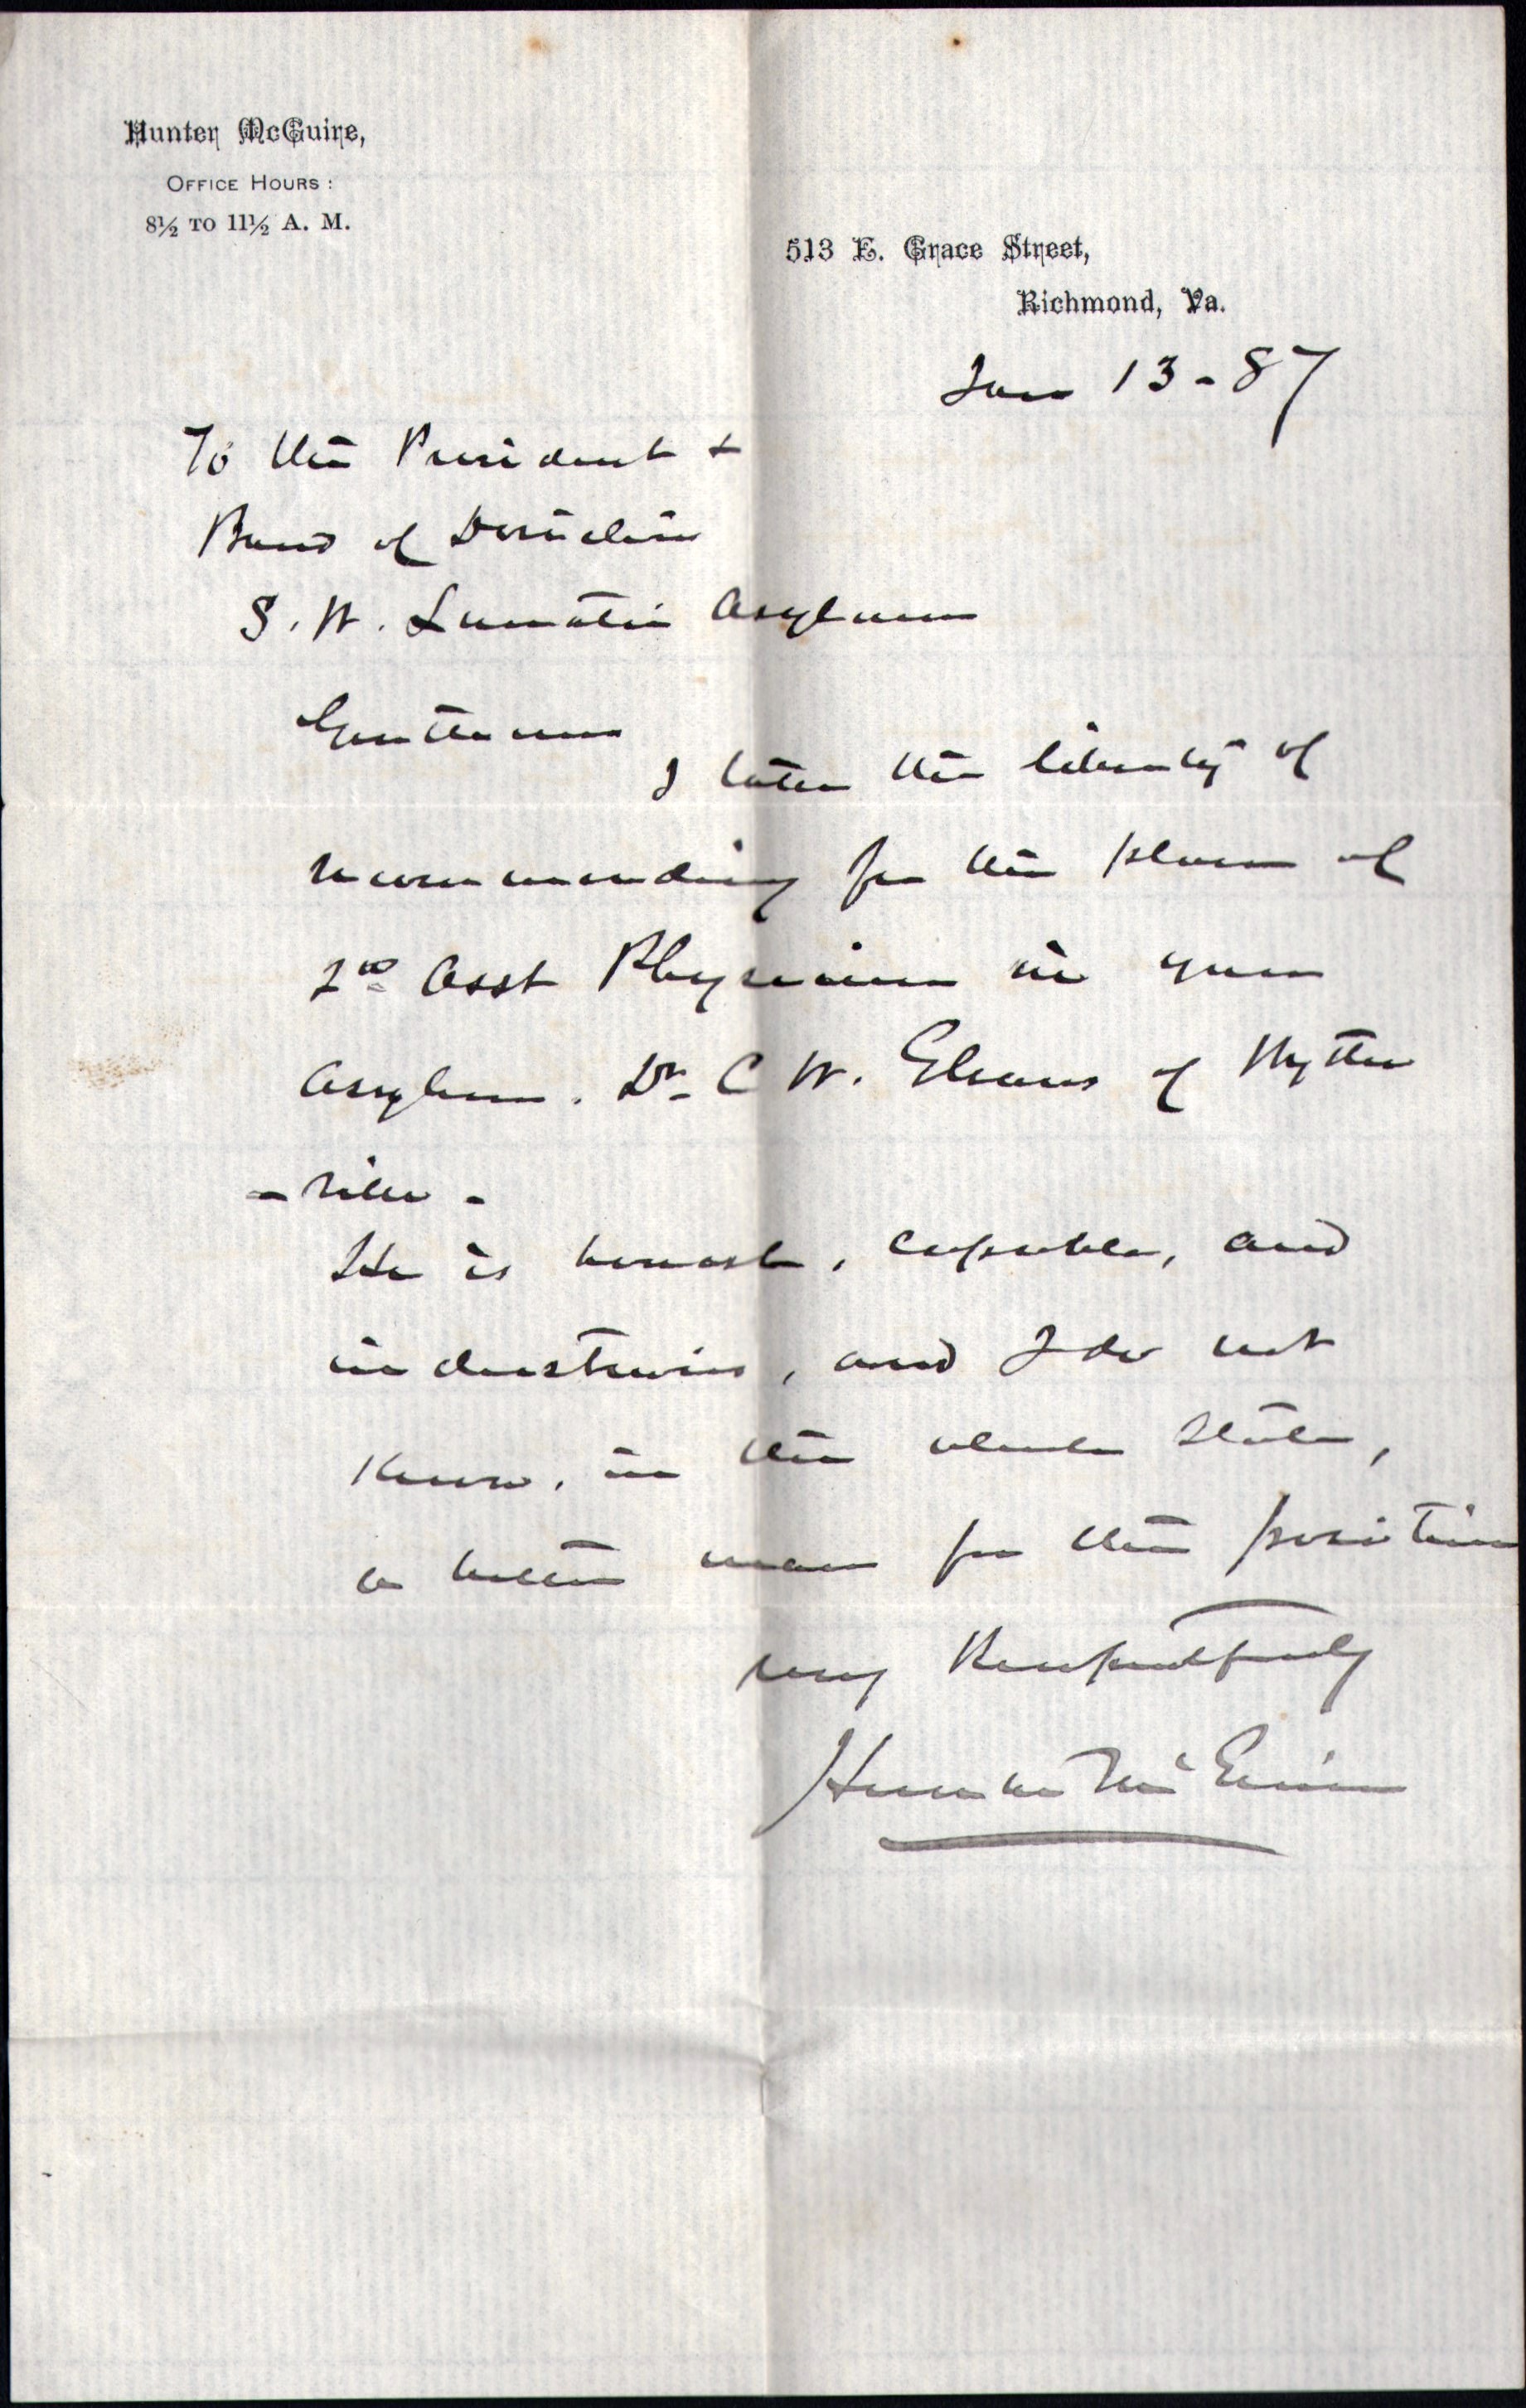 Hunter McGuire,
OFFICE HOURS:
8½ TO 11½ A. M.
513 E. Grace Street,
Richmond, Va.
Jan 13 - 87
To the President +
Board of Directors
S. W. Lunatic Asylum
Gentlemen
I take the liberty of
recommending for the place of
2nd Asst Physician in your
Asylum. Dr C W. of Wythe
- ville -
He is honest, capable, and
industrious, and I do not
know, in the whole State,
a better man for the position
very Respectfully
Hunter McGuire